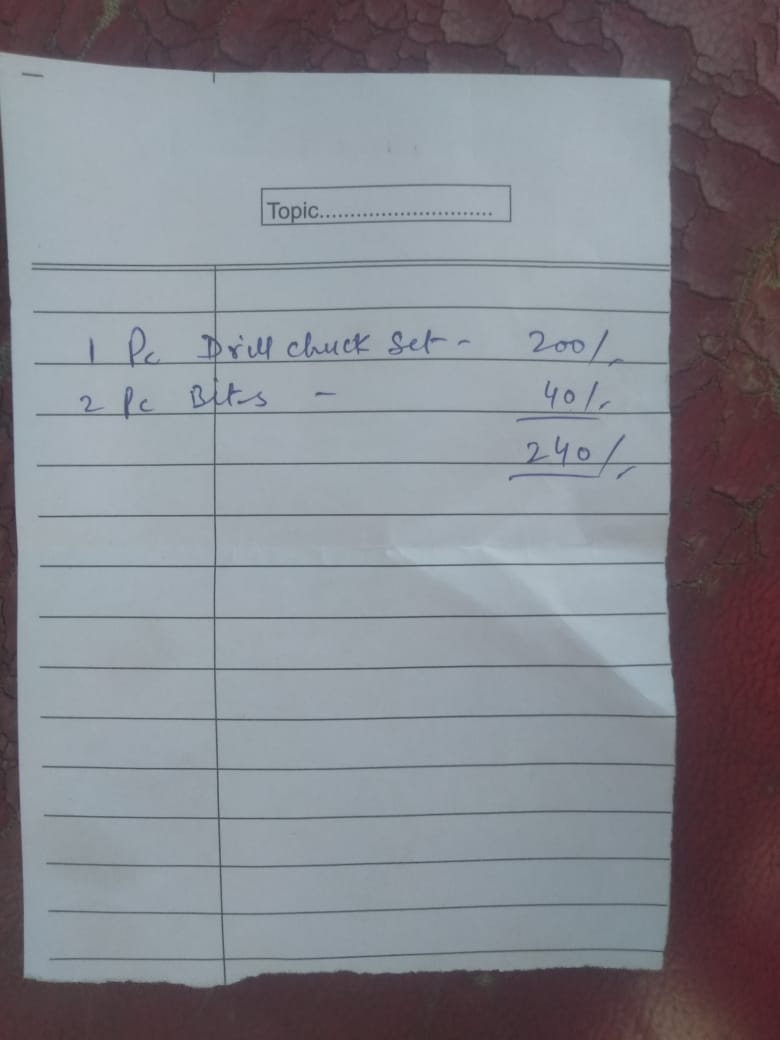 Topic............................
1 Pc Drill chuck Set - 200/-
2 Pc Bits - 40/-
240/-